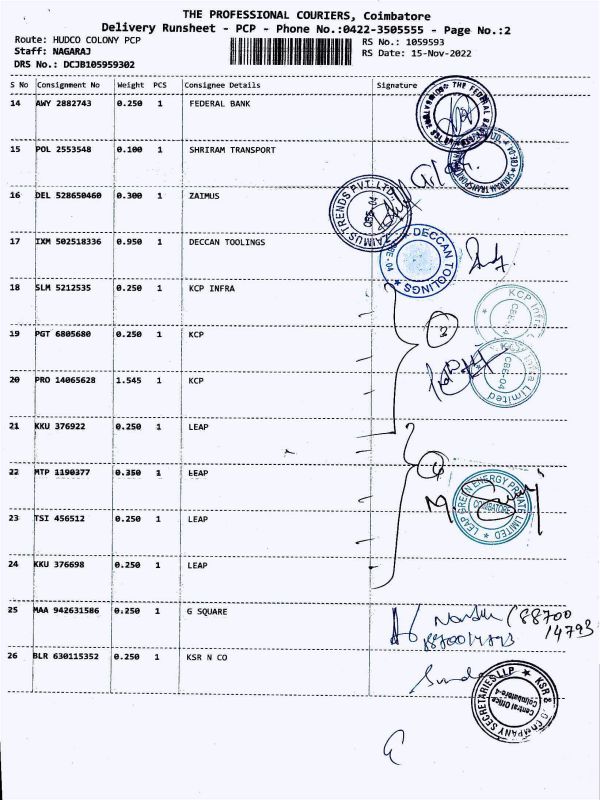 THE PROFESSIONAL COURIERS, Coimbatore
Delivery Runsheet - PCP - Phone No.:0422-3505555 - Page No.:2
Route: HUDCO COLONY PCP
RS No.: 1059593
Staff: NAGARAJ
RS Date: 15-Nov-2022
DRS No.: DCJB105959302
S No Consignment No Weight PCS Consignee Details Signature
14 AWY 2882743 0.250 1 FEDERAL BANK
15 POL 2553548 0.100 1 SHRIRAM TRANSPORT
16 DEL 528650460 0.300 1 ZAIMUS
ZAIMUS TRENDS PVT. LTD.
CBE-04
17 IXM 502518336 0.950 1 DECCAN TOOLINGS
DECCAN TOOLINGS
CBE-04
18 SLM 5212535 0.250 1 KCP INFRA
KCP Infra
CBE-04
19 PGT 6805680 0.250 1 KCP
3
KCP Infra Limited
CBE-04
20 PRO 14065628 1.545 1 KCP
21 KKU 376922 0.250 1 LEAP
22 MTP 1190377 0.350 1 LEAP
4
LEAP GREEN ENERGY PRIVATE LIMITED
COIMBATORE
23 TSI 456512 0.250 1 LEAP
24 KKU 376698 0.250 1 LEAP
25 MAA 942631586 0.250 1 G SQUARE
88700
14793
26 BLR 630115352 0.250 1 KSR N CO
KSR & CO COMPANY SECRETARIES LLP
Central Office
Coimbatore-4